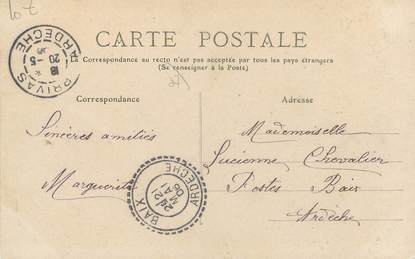 CARTE POSTALE
La Correspondance au recto n'est pas acceptée par tous les pays étrangers
(Se renseigner à la Poste)
Correspondance
Adresse
Sincères amitiés
Marguerite
Mademoiselle
Lucienne Chevalier
Postes Baix
Ardèche
PRIVAS
ARDECHE
20-5
BAIX
ARDECHE
21
MAI